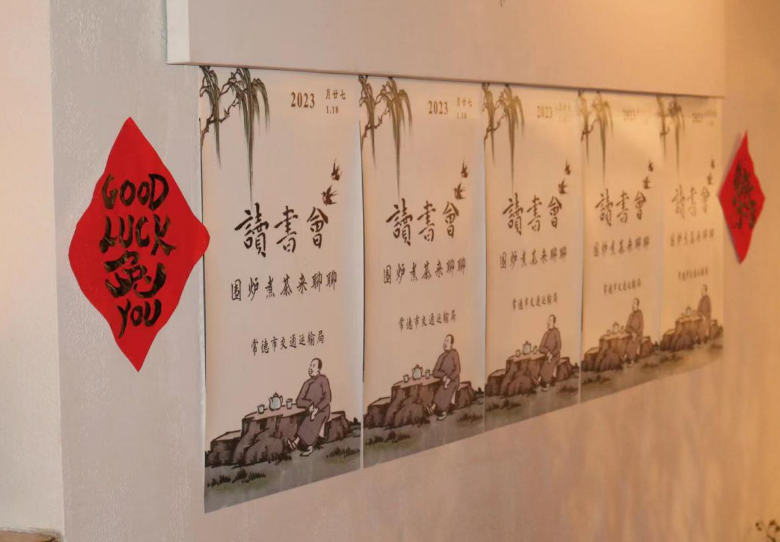 GOOD
LUCK
兔
YOU
2023 月廿七
1.18
讀書會
围炉煮茶来聊聊
常德市交通运输局
2023 月廿七
1.18
讀書會
围炉煮茶来聊聊
常德市交通运输局
2023
1.18
讀書會
围炉煮茶来聊聊
常德市交通运输局
2023
讀書會
围炉煮茶来聊聊
常德市交通运输局
2023
讀書會
围炉煮茶来聊聊
常德市交通运输局